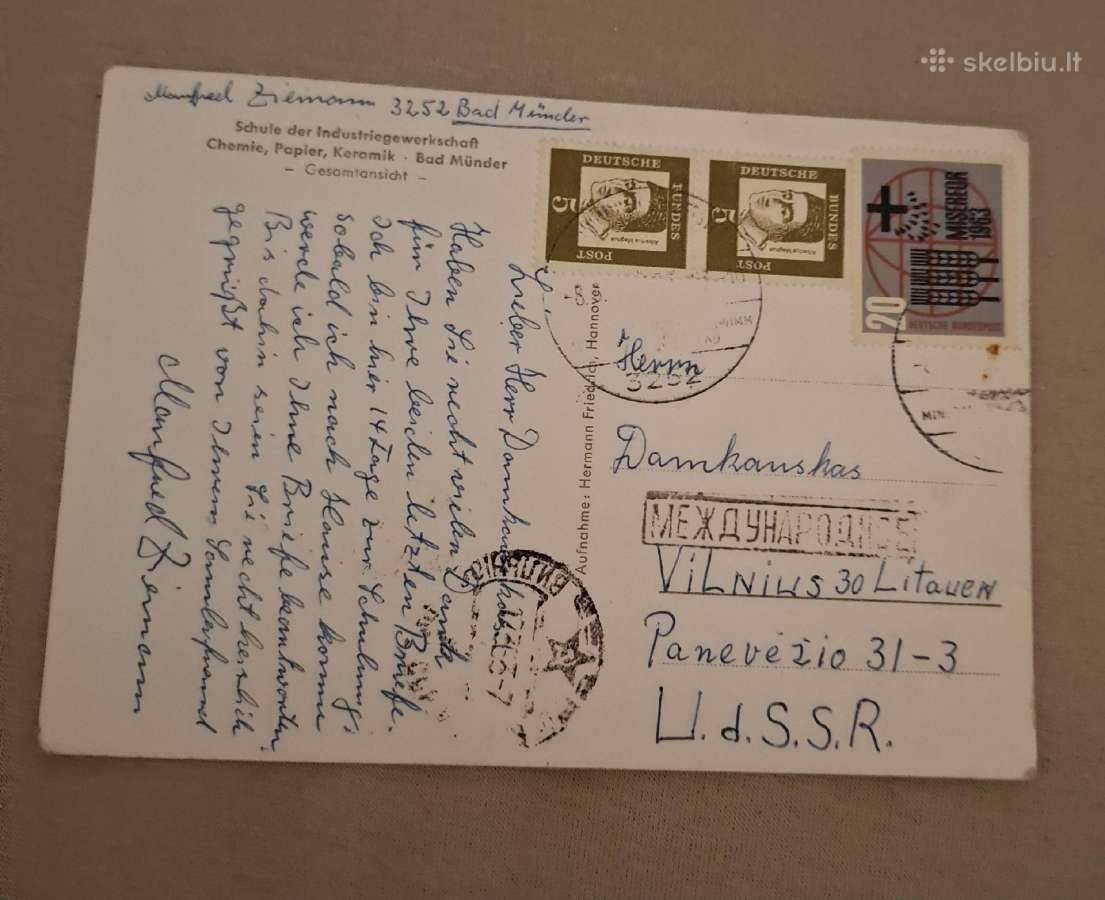 skelbiu.lt
Manfred Ziemann 3252 Bad Münder
Schule der Industriegewerkschaft
Chemie, Papier, Keramik · Bad Münder
– Gesamtansicht –
Lieber Herr Damkauskas!
Haben Sie recht vielen Dank
für Ihre beiden letzten Briefe.
Ich bin hier 14 Tage zur Schulung,
sobald ich nach Hause komme
werde ich Ihne Briefe beantworten
Bis dahin seien Sie recht herzlich
gegrüßt von Ihrem
Manfred Ziemann
Aufnahme: Hermann Friedrich, Hannover
DEUTSCHE
BUNDES
POST
5
Albertus Magnus
DEUTSCHE
BUNDES
POST
5
Albertus Magnus
MISEREOR
1963
20
DEUTSCHE BUNDESPOST
3252
Herrn
Damkauskas
МЕЖДУНАРОДНОЕ
VILNIUS 30 Litauen
Panevėžio 31-3
U.d.S.S.R.